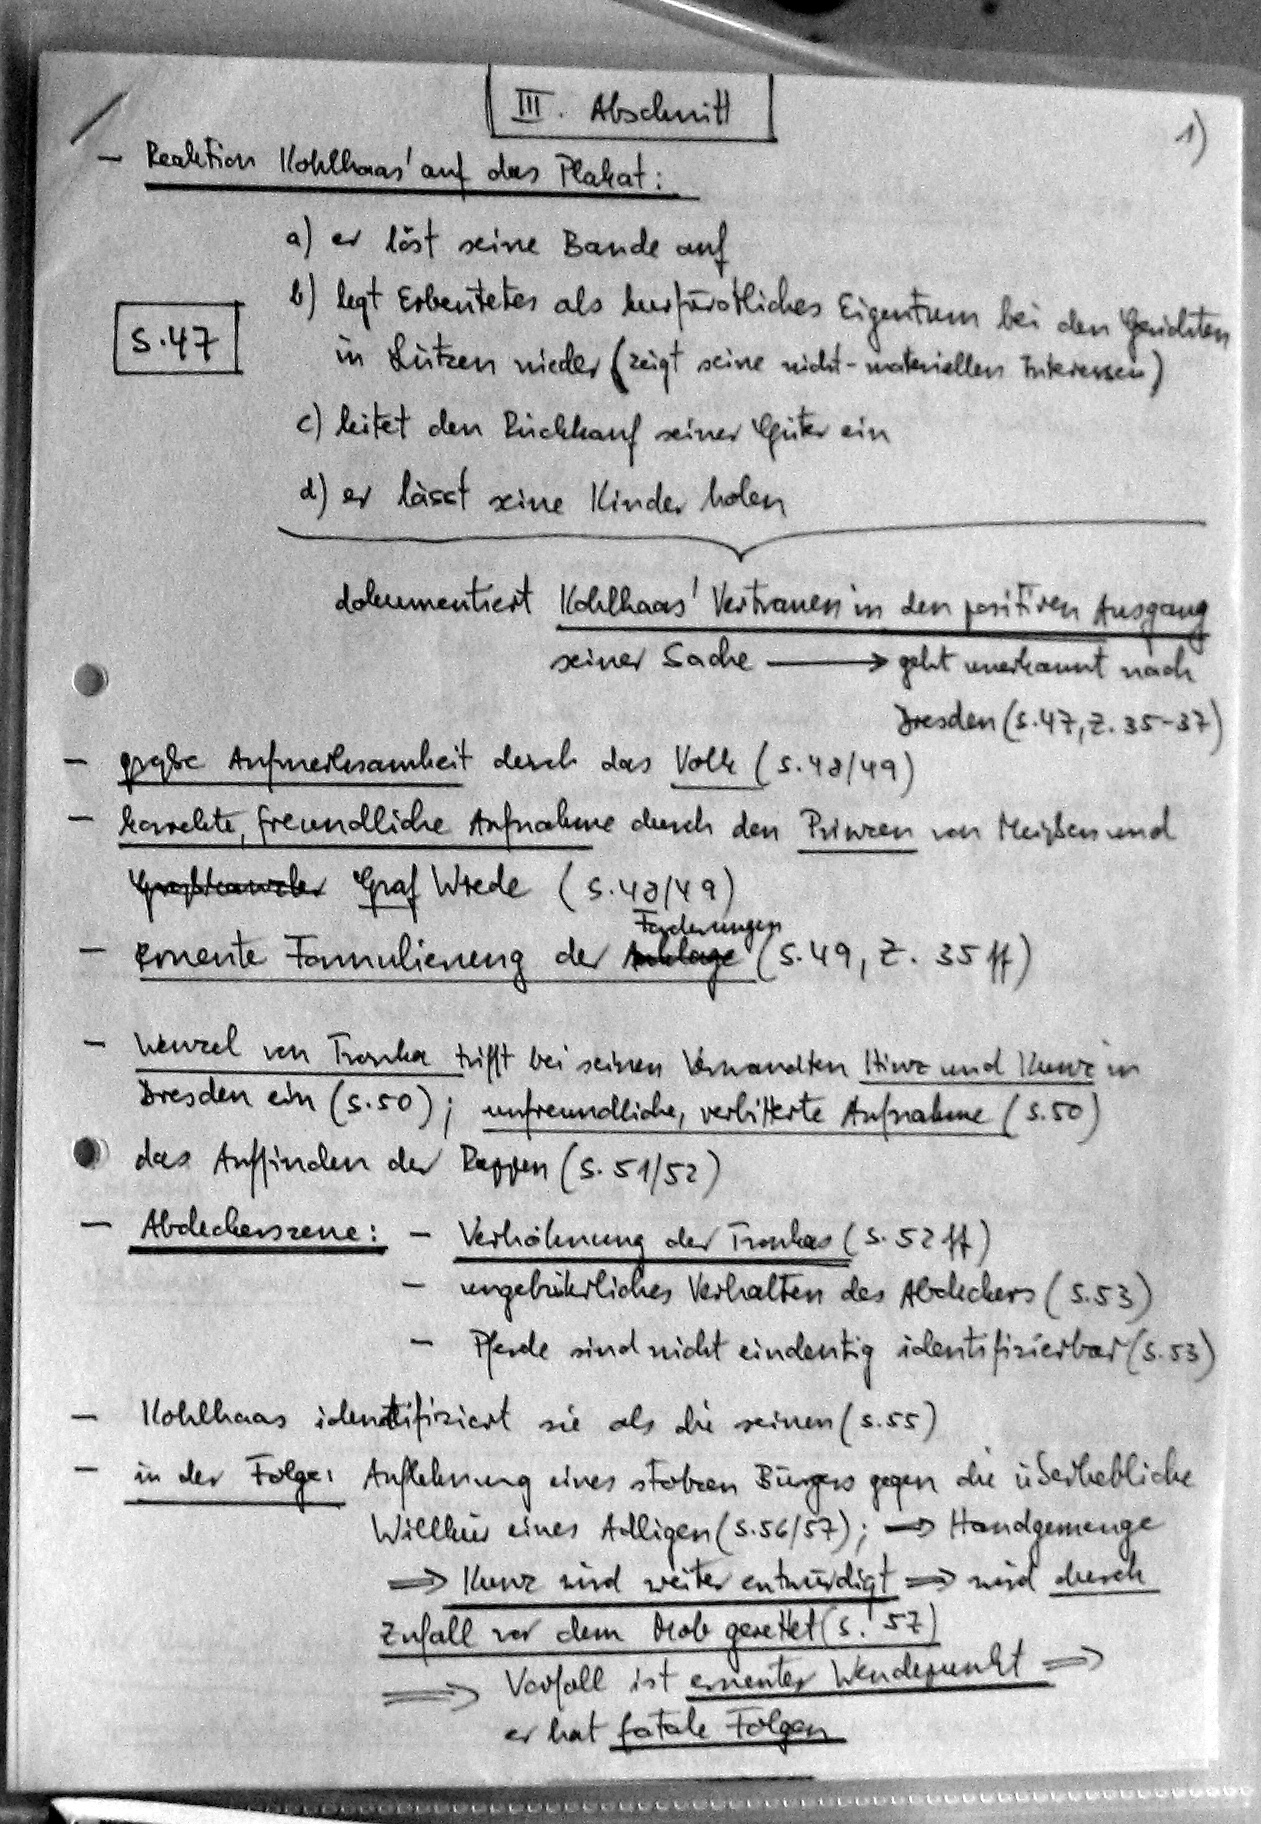 III. Abschnitt
1)
– Reaktion Kohlhaas' auf das Plakat:
a) er löst seine Bande auf
b) legt Erbeutetes als kurfürstliches Eigentum bei den Gerichten
S.47
in Lützen nieder (zeigt seine nicht-materiellen Interessen)
c) leitet den Rückkauf seiner Güter ein
d) er lässt seine Kinder holen
dokumentiert Kohlhaas' Vertrauen in den positiven Ausgang
seiner Sache → geht unerkannt nach
Dresden (S.47, Z. 35-37)
– große Aufmerksamkeit durch das Volk (S.48/49)
– korrekte, freundliche Aufnahme durch den Prinzen von Meißen und
Großkanzler Graf Wrede (S.48/49)
Forderungen
– erneute Formulierung der Anklage (S.49, Z. 35 ff)
– Wenzel von Tronka trifft bei seinen Verwandten Hinz und Kunz in
Dresden ein (S.50); unfreundliche, verbitterte Aufnahme (S.50)
das Auffinden der Rappen (S. 51/52)
– Abdeckerszene: – Verhöhnung der Tronkas (S. 52 ff)
– ungebührliches Verhalten des Abdeckers (S.53)
– Pferde sind nicht eindeutig identifizierbar (S.53)
– Kohlhaas identifiziert sie als die seinen (S.55)
– in der Folge: Auflehnung eines stolzen Bürgers gegen die überhebliche
Willkür eines Adligen (S.56/57); ⇒ Handgemenge
⇒ Kunz wird weiter entwürdigt ⇒ wird durch
Zufall vor dem Mob gerettet (S. 57)
⇒ Vorfall ist erneuter Wendepunkt ⇒
er hat fatale Folgen